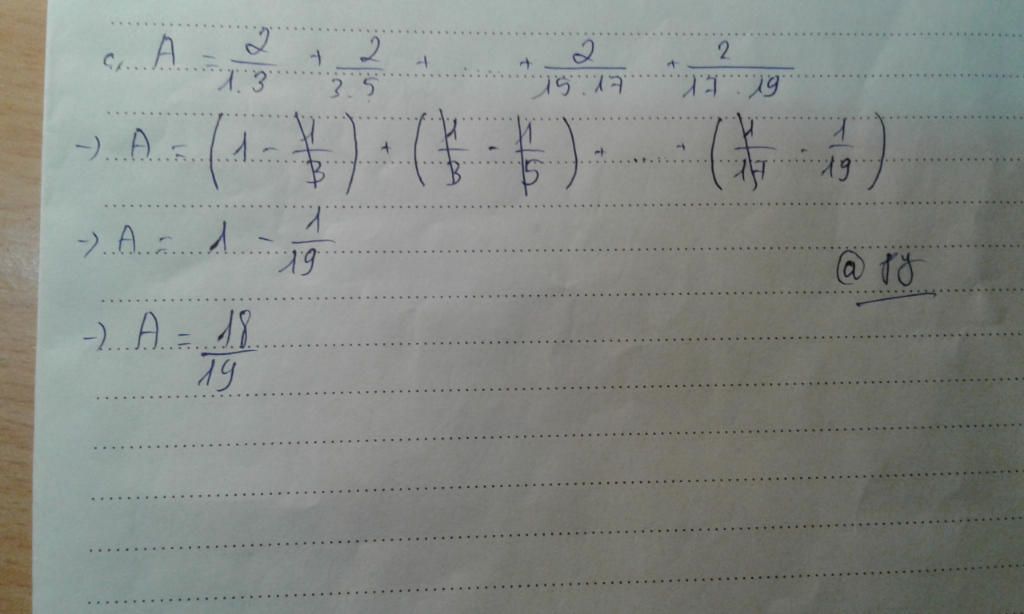 c, A = 2/1.3 + 2/3.5 + .... + 2/15.17 + 2/17.19
-> A = (1 - 1/3) + (1/3 - 1/5) + .... + (1/17 - 1/19)
-> A = 1 - 1/19
-> A = 18/19